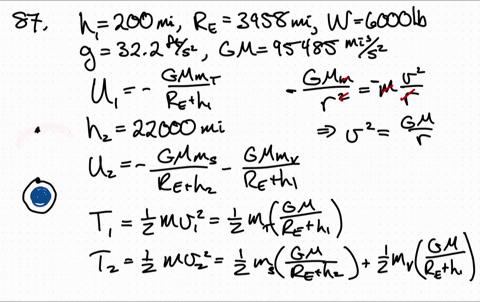 87. h₁=200mi, R_E=3958mi, W=6000lb
g=32.2 ft/s², GM=95485 mi³/s²
U₁=-GMm_T/(R_E+h₁)
-GMm/r²=-m v²/r
h₂=22000mi
⇒ v²=GM/r
U₂=-GMm_S/(R_E+h₂)-GMm_V/(R_E+h₁)
T₁=½mv₁²=½m_T(GM/(R_E+h₁))
T₂=½mv₂²=½m_S(GM/(R_E+h₂))+½m_V(GM/(R_E+h₁))